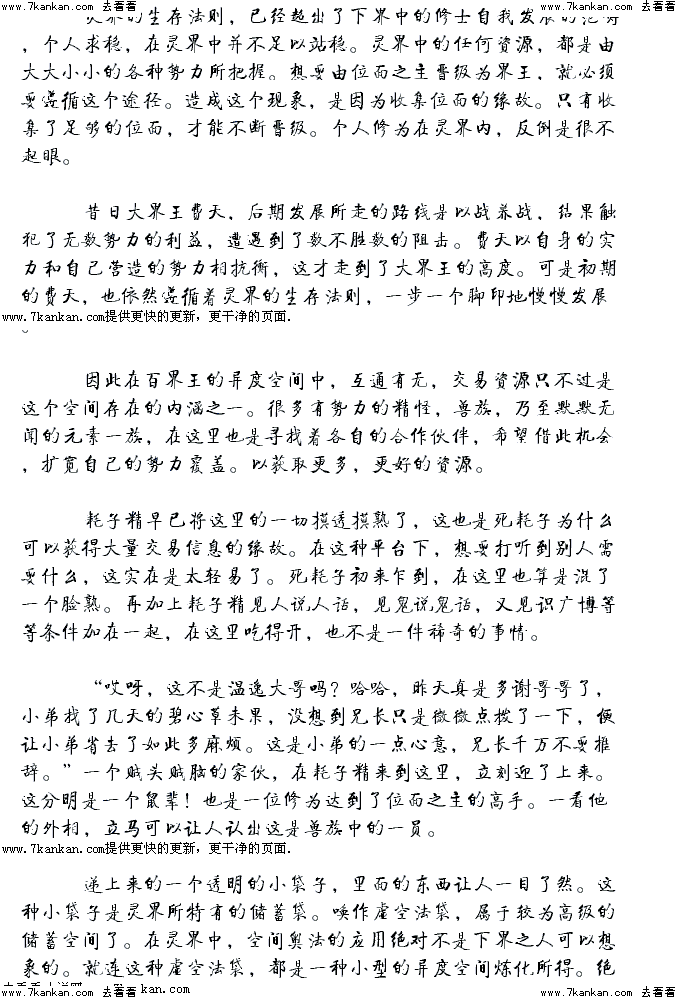 www.7kankan.com 去看看 www.7kankan.com 去看看 www.7kankan.com 去看看
灵界的生存法则，已经超出了下界中的修士自我发展的范畴
，个人求稳，在灵界中并不足以站稳。灵界中的任何资源，都是由
大大小小的各种势力所把握。想要由位面之主晋级为界王，就必须
要遵循这个途径。造成这个现象，是因为收集位面的缘故。只有收
集了足够的位面，才能不断晋级。个人修为在灵界内，反倒是很不
起眼。
昔日大界王费天，后期发展所走的路线是以战养战，结果触
犯了无数势力的利益，遭遇到了数不胜数的阻击。费天以自身的实
力和自己营造的势力相抗衡，这才走到了大界王的高度。可是初期
的费天，也依然遵循着灵界的生存法则，一步一个脚印地慢慢发展
www.7kankan.com提供更快的更新，更干净的页面.
。
因此在百界王的异度空间中，互通有无，交易资源只不过是
这个空间存在的内涵之一。很多有势力的精怪，兽族，乃至默默无
闻的元素一族，在这里也是寻找着各自的合作伙伴，希望借此机会
，扩宽自己的势力覆盖。以获取更多，更好的资源。
耗子精早已将这里的一切摸透摸熟了，这也是死耗子为什么
可以获得大量交易信息的缘故。在这种平台下，想要打听到别人需
要什么，这实在是太轻易了。死耗子初来乍到，在这里也算是混了
一个脸熟。再加上耗子精见人说人话，见鬼说鬼话，又见识广博等
等条件加在一起，在这里吃得开，也不是一件稀奇的事情。
“哎呀，这不是温逸大哥吗？哈哈，昨天真是多谢哥哥了，
小弟找了几天的碧心草未果，没想到兄长只是微微点拨了一下，便
让小弟省去了如此多麻烦。这是小弟的一点心意，兄长千万不要推
辞。”一个贼头贼脑的家伙，在耗子精来到这里，立刻迎了上来。
这分明是一个鼠辈！也是一位修为达到了位面之主的高手。一看他
的外相，立马可以让人认出这是兽族中的一员。
www.7kankan.com提供更快的更新，更干净的页面.
递上来的一个透明的小袋子，里面的东西让人一目了然。这
种小袋子是灵界所特有的储蓄袋。唤作虚空法袋，属于较为高级的
储蓄空间了。在灵界中，空间奥法的应用绝对不是下界之人可以想
象的。就连这种虚空法袋，都是一种小型的异度空间炼化所得。绝
kan.com
www.7kankan.com 去看看 www.7kankan.com 去看看 www.7kankan.com 去看看